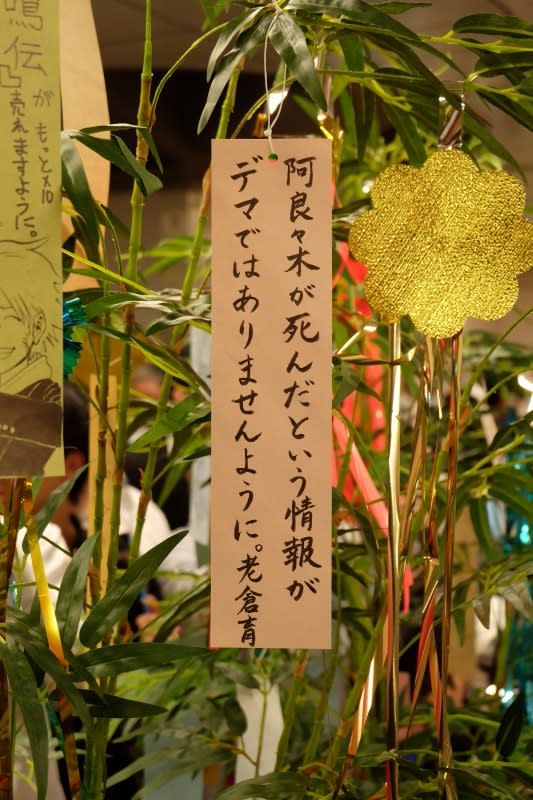 阿良々木が死んだという情報が
デマではありませんように。老倉育
鳴伝が
もっと×10
売れますように。